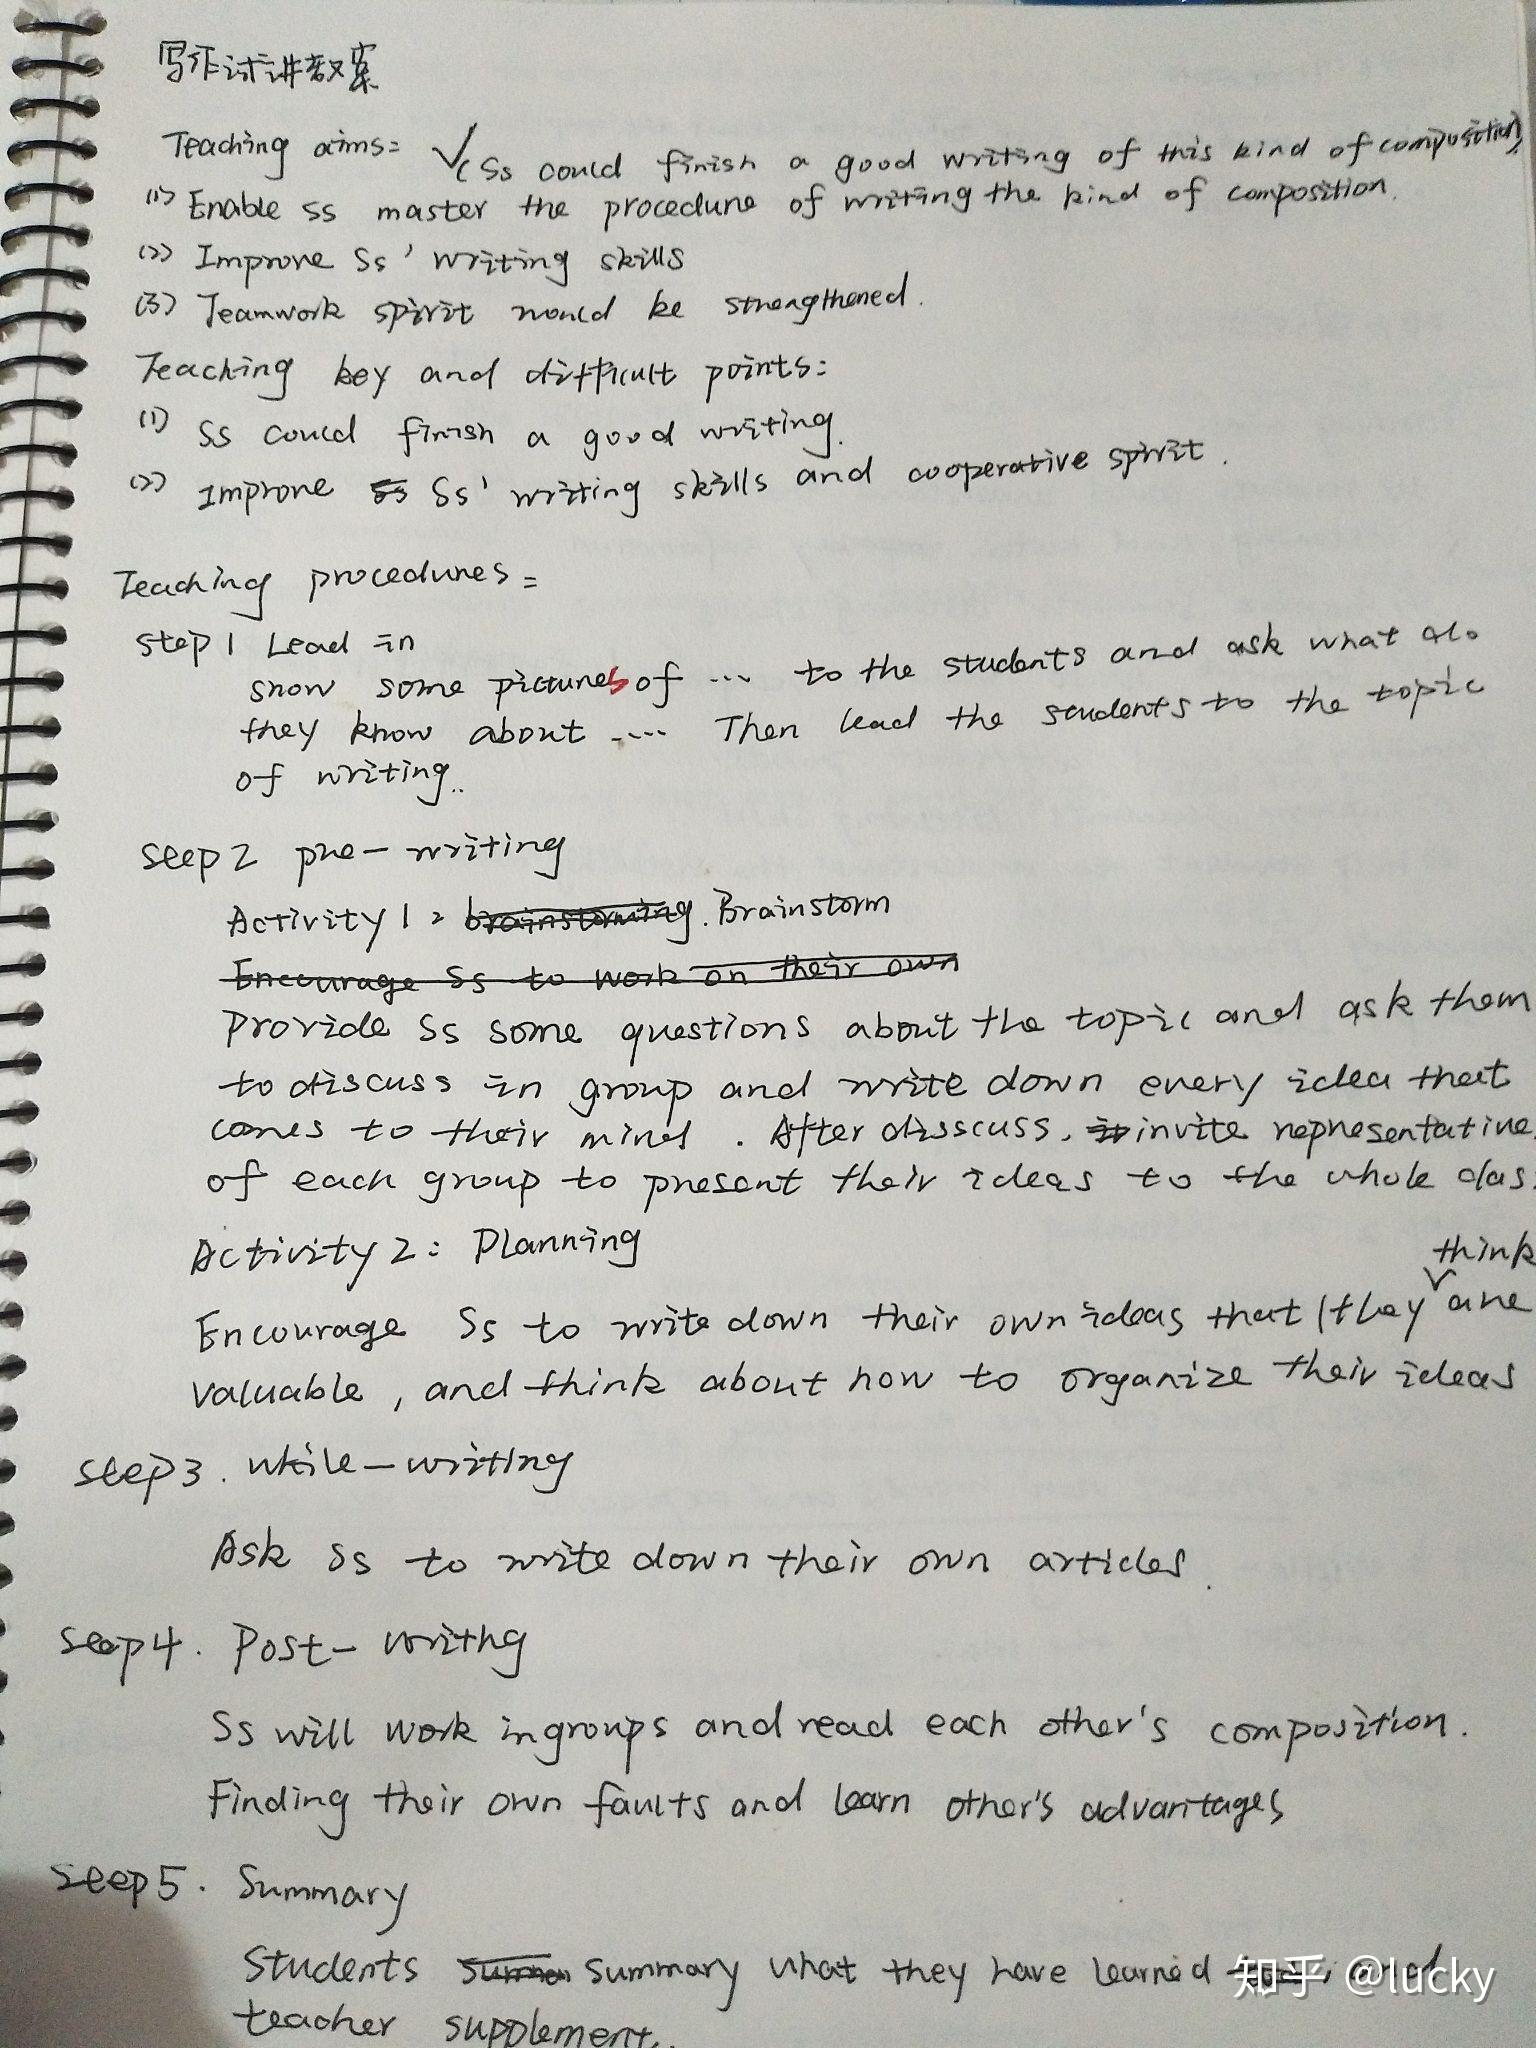 写作试讲教案
Teaching aims: √ (Ss could finish a good writing of this kind of composition)
(1) Enable ss master the procedure of writing the kind of composition.
(2) Improve Ss' writing skills
(3) Teamwork spirit would be strengthened.
Teaching key and difficult points:
(1) Ss could finish a good writing.
(2) Improve Ss' writing skills and cooperative spirit.
Teaching procedures:
step 1 Lead in
show some pictures of ... to the students and ask what do
they know about .... Then lead the students to the topic
of writing..
step 2 pre-writing
Activity 1: brainstorming. Brainstorm
Encourage Ss to work on their own
Provide Ss some questions about the topic and ask them
to discuss in group and write down every idea that
comes to their mind. After disscuss, invite representative
of each group to present their ideas to the whole clas
Activity 2: Planning
think
Encourage Ss to write down their own ideas that they are
valuable, and think about how to organize their ideas
step 3. while-writing
Ask Ss to write down their own articles.
step 4. Post-writing
Ss will work in groups and read each other's composition.
Finding their own faults and learn other's advantages
step 5. Summary
Students summary what they have learned and
teacher supplement..
知乎 @lucky